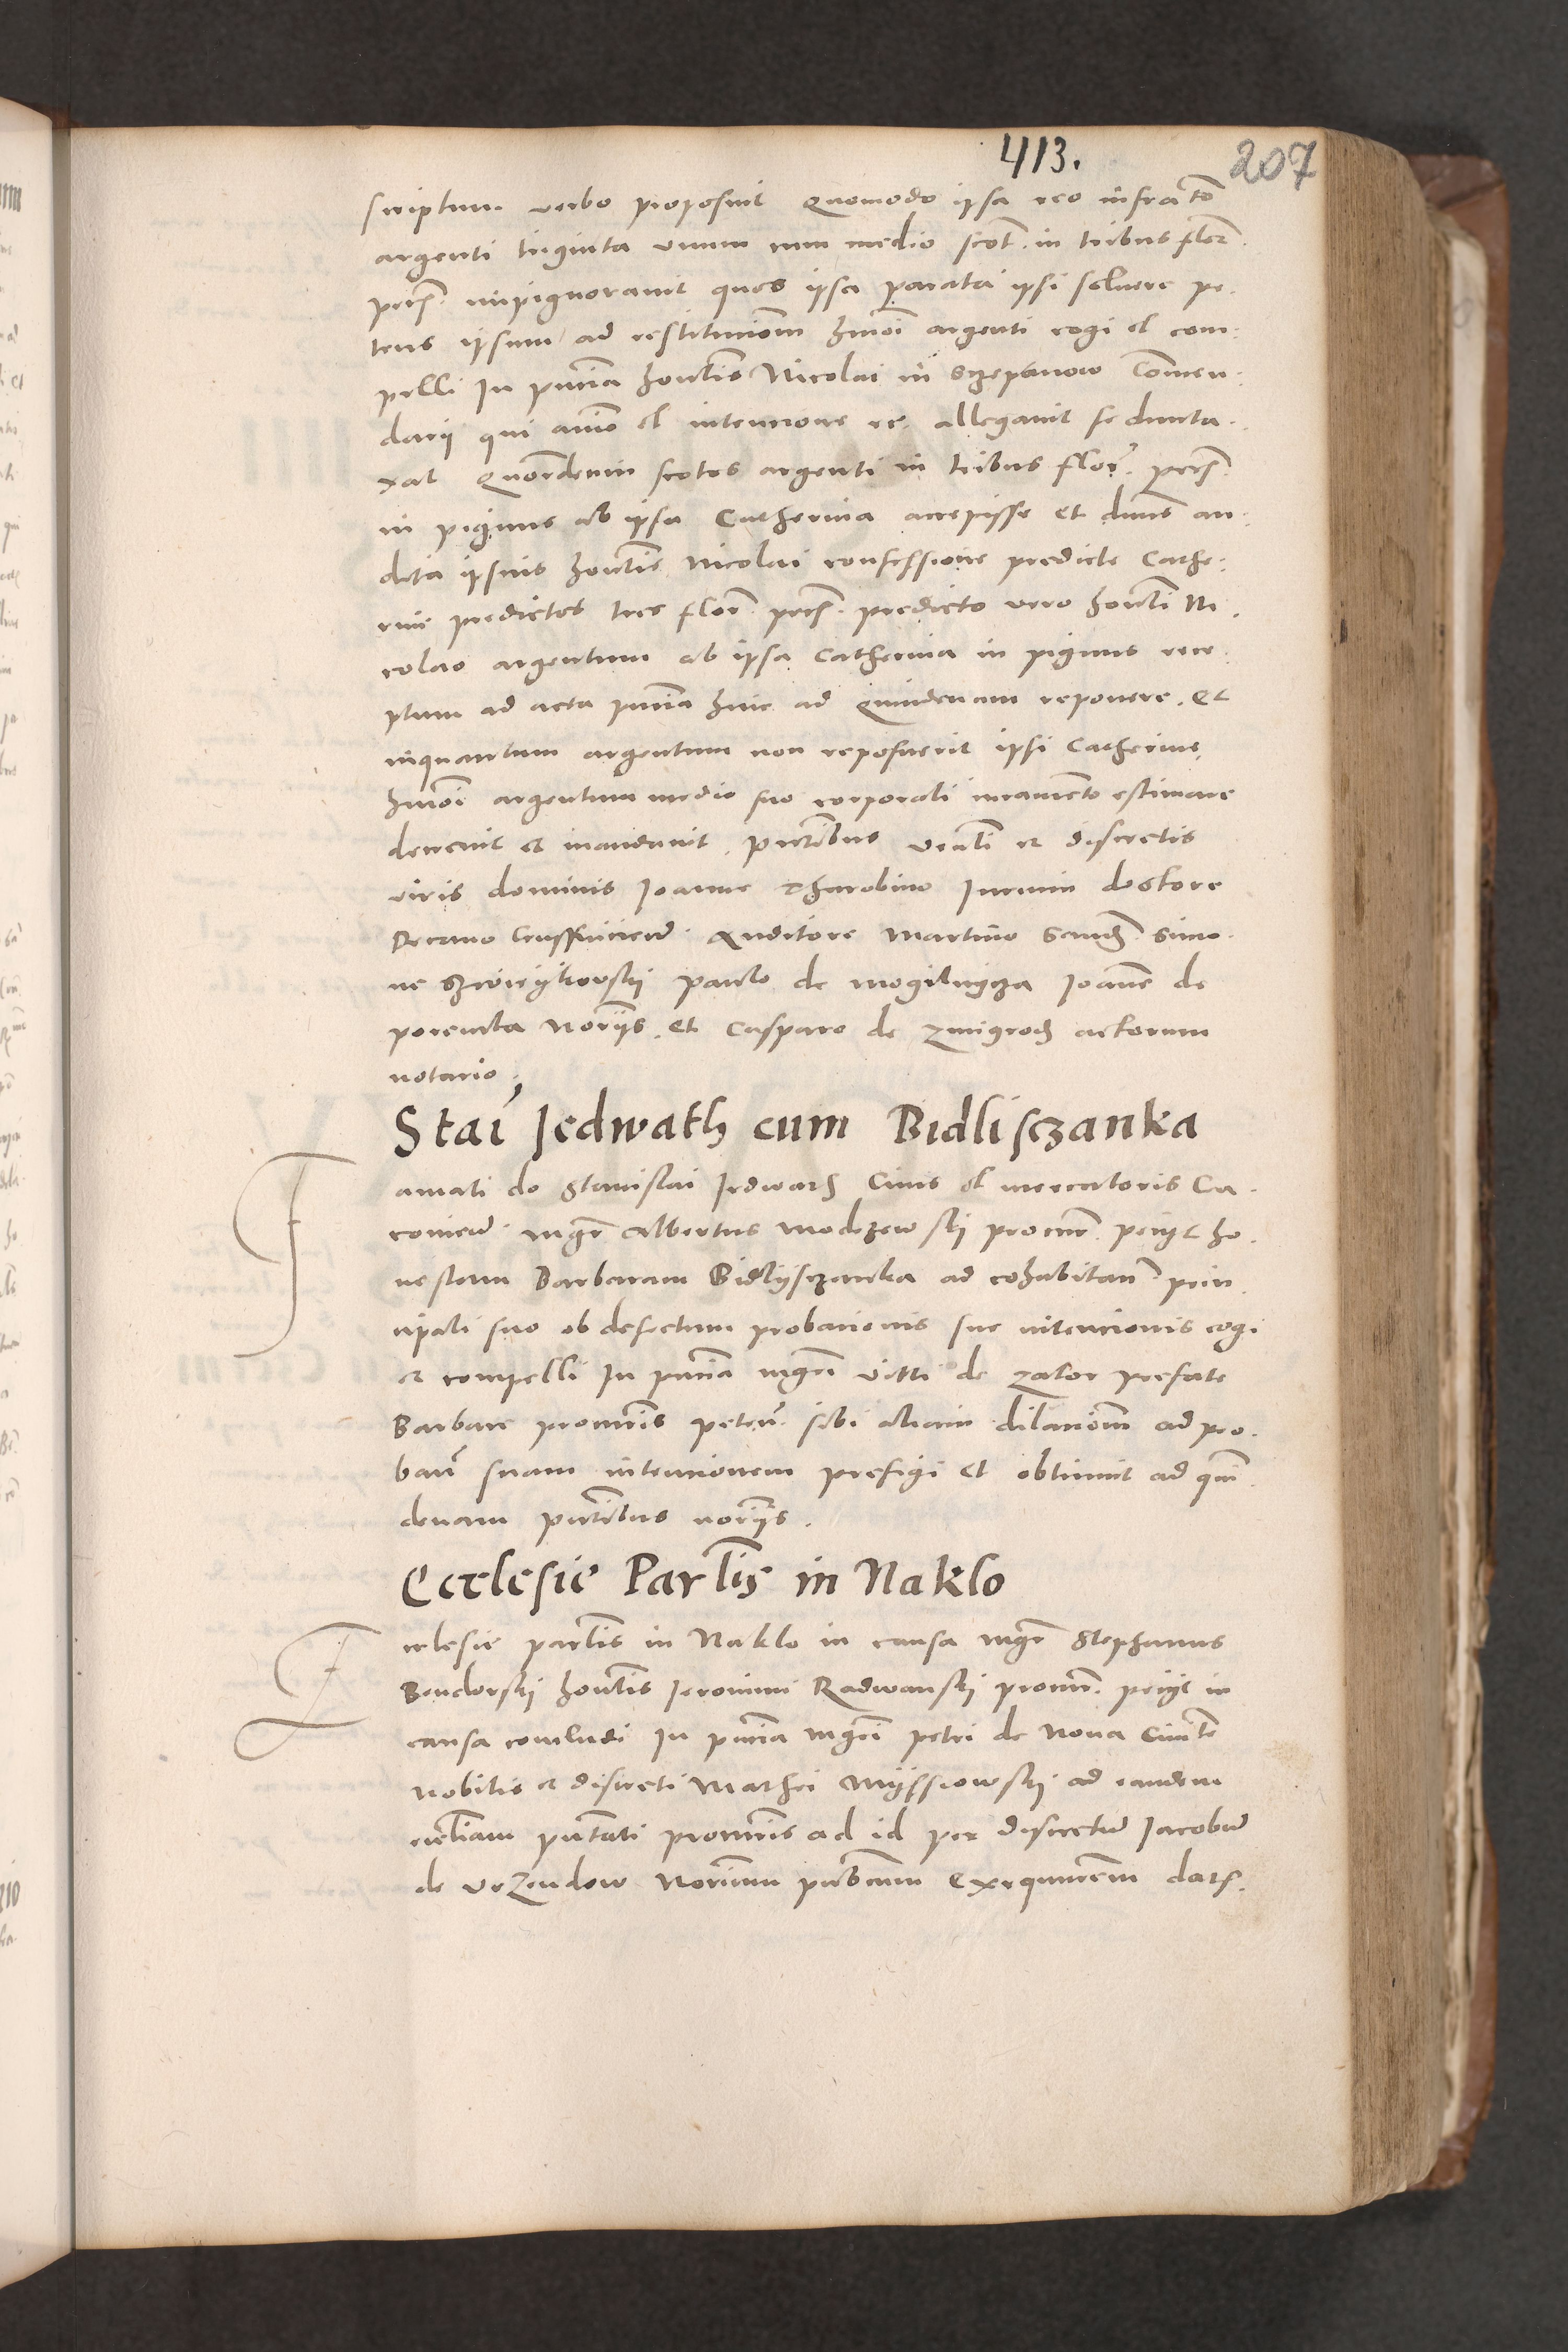 413. 207
scriptum verbo proposuit Quomodo ipsa reo infrascto
argenti triginta unum cum medio scot. in tribus flor.
pecs. inpignoravit quos ipsa parata ipsi solvere pe.
tens ipsum ad restitucionem hmoi argenti cogi et com.
pelli In pntia hontis Nicolai in Szepanow Commen.
darij qui animo et intencione re. allegavit se dunta.
xat Quordecim scotos argenti in tribus flor. pecs.
in pignus ab ipsa Catherina accepisse et dnus au.
dita ipsius hontis Nicolai confessione predicte Cathe.
rine predictos tres flor. pecs. predicto vero honti Ni.
colao argentum ab ipsa Catherina in pignus rece.
ptum ad acta pntia huic ad quindenam reponere. Et
inquantum argentum non reposuerit ipsi Catherine
hmoi argentum medio suo corporali iuramento estimare
decrevit et mandavit. pntibus venli et discretis
viris dominis Ioanne Tharobino Iurium doctore
Decano Auditore Martino Simo.
ne paulo de mogilnycza Ioanne de
poremba Noriis. et Casparo de Zmigrod actorum
notario.
Stai Jedwath cum Bidlisczanka
Famati do Stanislai Jedwath Civis et mercatoris Cra.
covien. mgr Albertus modrzewskij procur. pecijt ho.
nestam Barbaram Bidlijsczanka ad cohabitan. prin.
cipali suo ob defectum probacionis sue intencionis cogi
et compelli In pntia mgri vitti de Zator prefate
Barbare procuris peten. sibi aliam dilacionem ad pro.
ban. suam intencionem prefigi et obtinuit ad quin.
denam pntibus noriis.
Ecclesie Parlis in Naklo
Ecclesie parlis in Naklo in causa mgr Stephanus
Bendorskij hontis Jeronimi Radwanskij procur. pecijt in
causa concludi In pntia mgri petri de Nova Civite
Nobilis et discreti Mathei Mijssiowskij ad eandem
ecliam pntati procuris ad id per discretum Jacobum
de vrzendow Norium publicum Exequucorem dats.